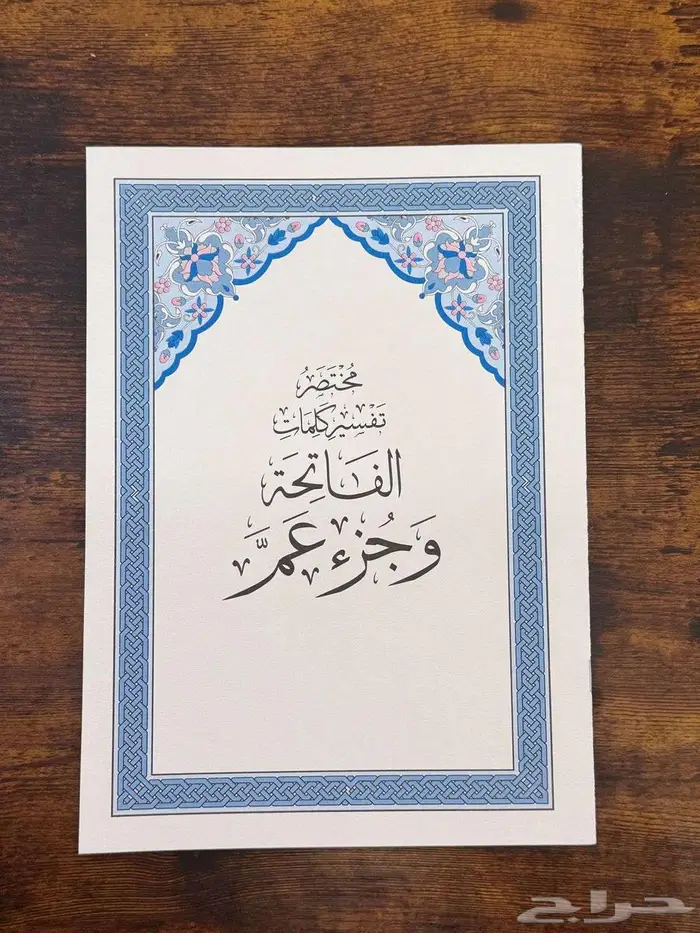 مُخْتَصَرُ
تَفْسِيرِ كَلِمَاتِ
الفَاتِحَة
وَجُزْء عَمَّ
حراج